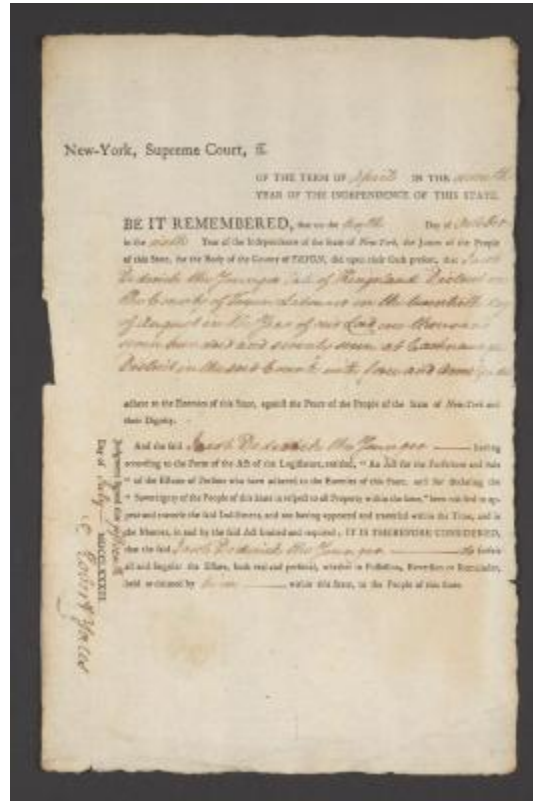 New-York, Supreme Court, ſſ.
OF THE TERM OF April IN THE seventh
YEAR OF THE INDEPENDENCE OF THIS STATE.
BE IT REMEMBERED, that on the Day of October
in the sixth Year of the Independence of the State of New-York, the Jurors of the People
of this State, for the Body of the County of TRYON, did upon their Oath preſent, that Jacob
the Younger late of Kingsland District in
the County of Tryon Labourer on the twentieth day
of August in the Year of our Lord one thousand
seven hundred and seventy seven at
District in the said County with force and Arms did
adhere to the Enemies of this State, againſt the Peace of the People of the State of New-York and
their Dignity.
And the ſaid Jacob the Younger having
according to the Form of the Act of the Legiſlature, entitled, "An Act for the Forfeiture and Sale
"of the Eſtates of Perſons who have adhered to the Enemies of this State, and for declaring the
"Sovereignty of the People of this State in reſpect to all Property within the ſame," been notified to ap-
pear and traverſe the ſaid Indictment, and not having appeared and traverſed within the Time, and in
the Manner, in and by the ſaid Act limited and required; IT IS THEREFORE CONSIDERED,
that the ſaid Jacob the Younger do forfeit
all and ſingular the Eſtate, both real and perſonal, whether in Poſſeſſion, Reverſion or Remainder,
held or claimed by him within this State, to the People of this State.
Judgment ſigned this
Day of July MDCCLXXXIII.
Robert Yates